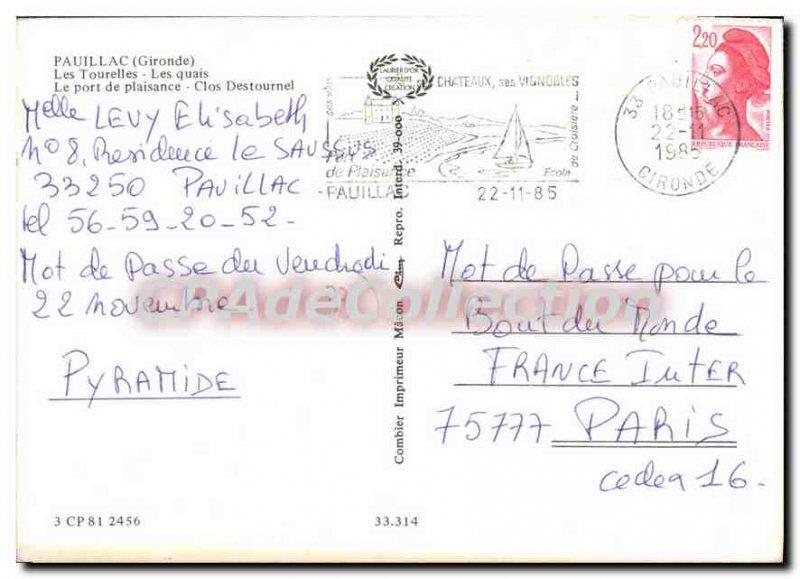 PAUILLAC (Gironde)
Les Tourelles - Les quais
Le port de plaisance - Clos Destournel
LAURIER D'OR
QUALITÉ
CRÉATION
CHATEAUX, ses VIGNOBLES
Port
de Plaisance
PAUILLAC
Ecole
de Croisière
22-11-85
33 PAUILLAC
18H15
22-11
1985
GIRONDE
2,20
REPUBLIQUE FRANÇAISE
Melle LEVY Elisabeth
N° 8, Residence le SAUSSUS
33250 PAUILLAC
tel 56-59-20-52-
Mot de Passe du Vendredi
22 novembre
PYRAMIDE
Combier Imprimeur Mâcon Cim Repro. Interd. 39-000
Mot de Passe pour le
Bout du Monde
FRANCE Inter
75777 PARIS
cedex 16.
CPAdeCollection
3 CP 81 2456
33.314